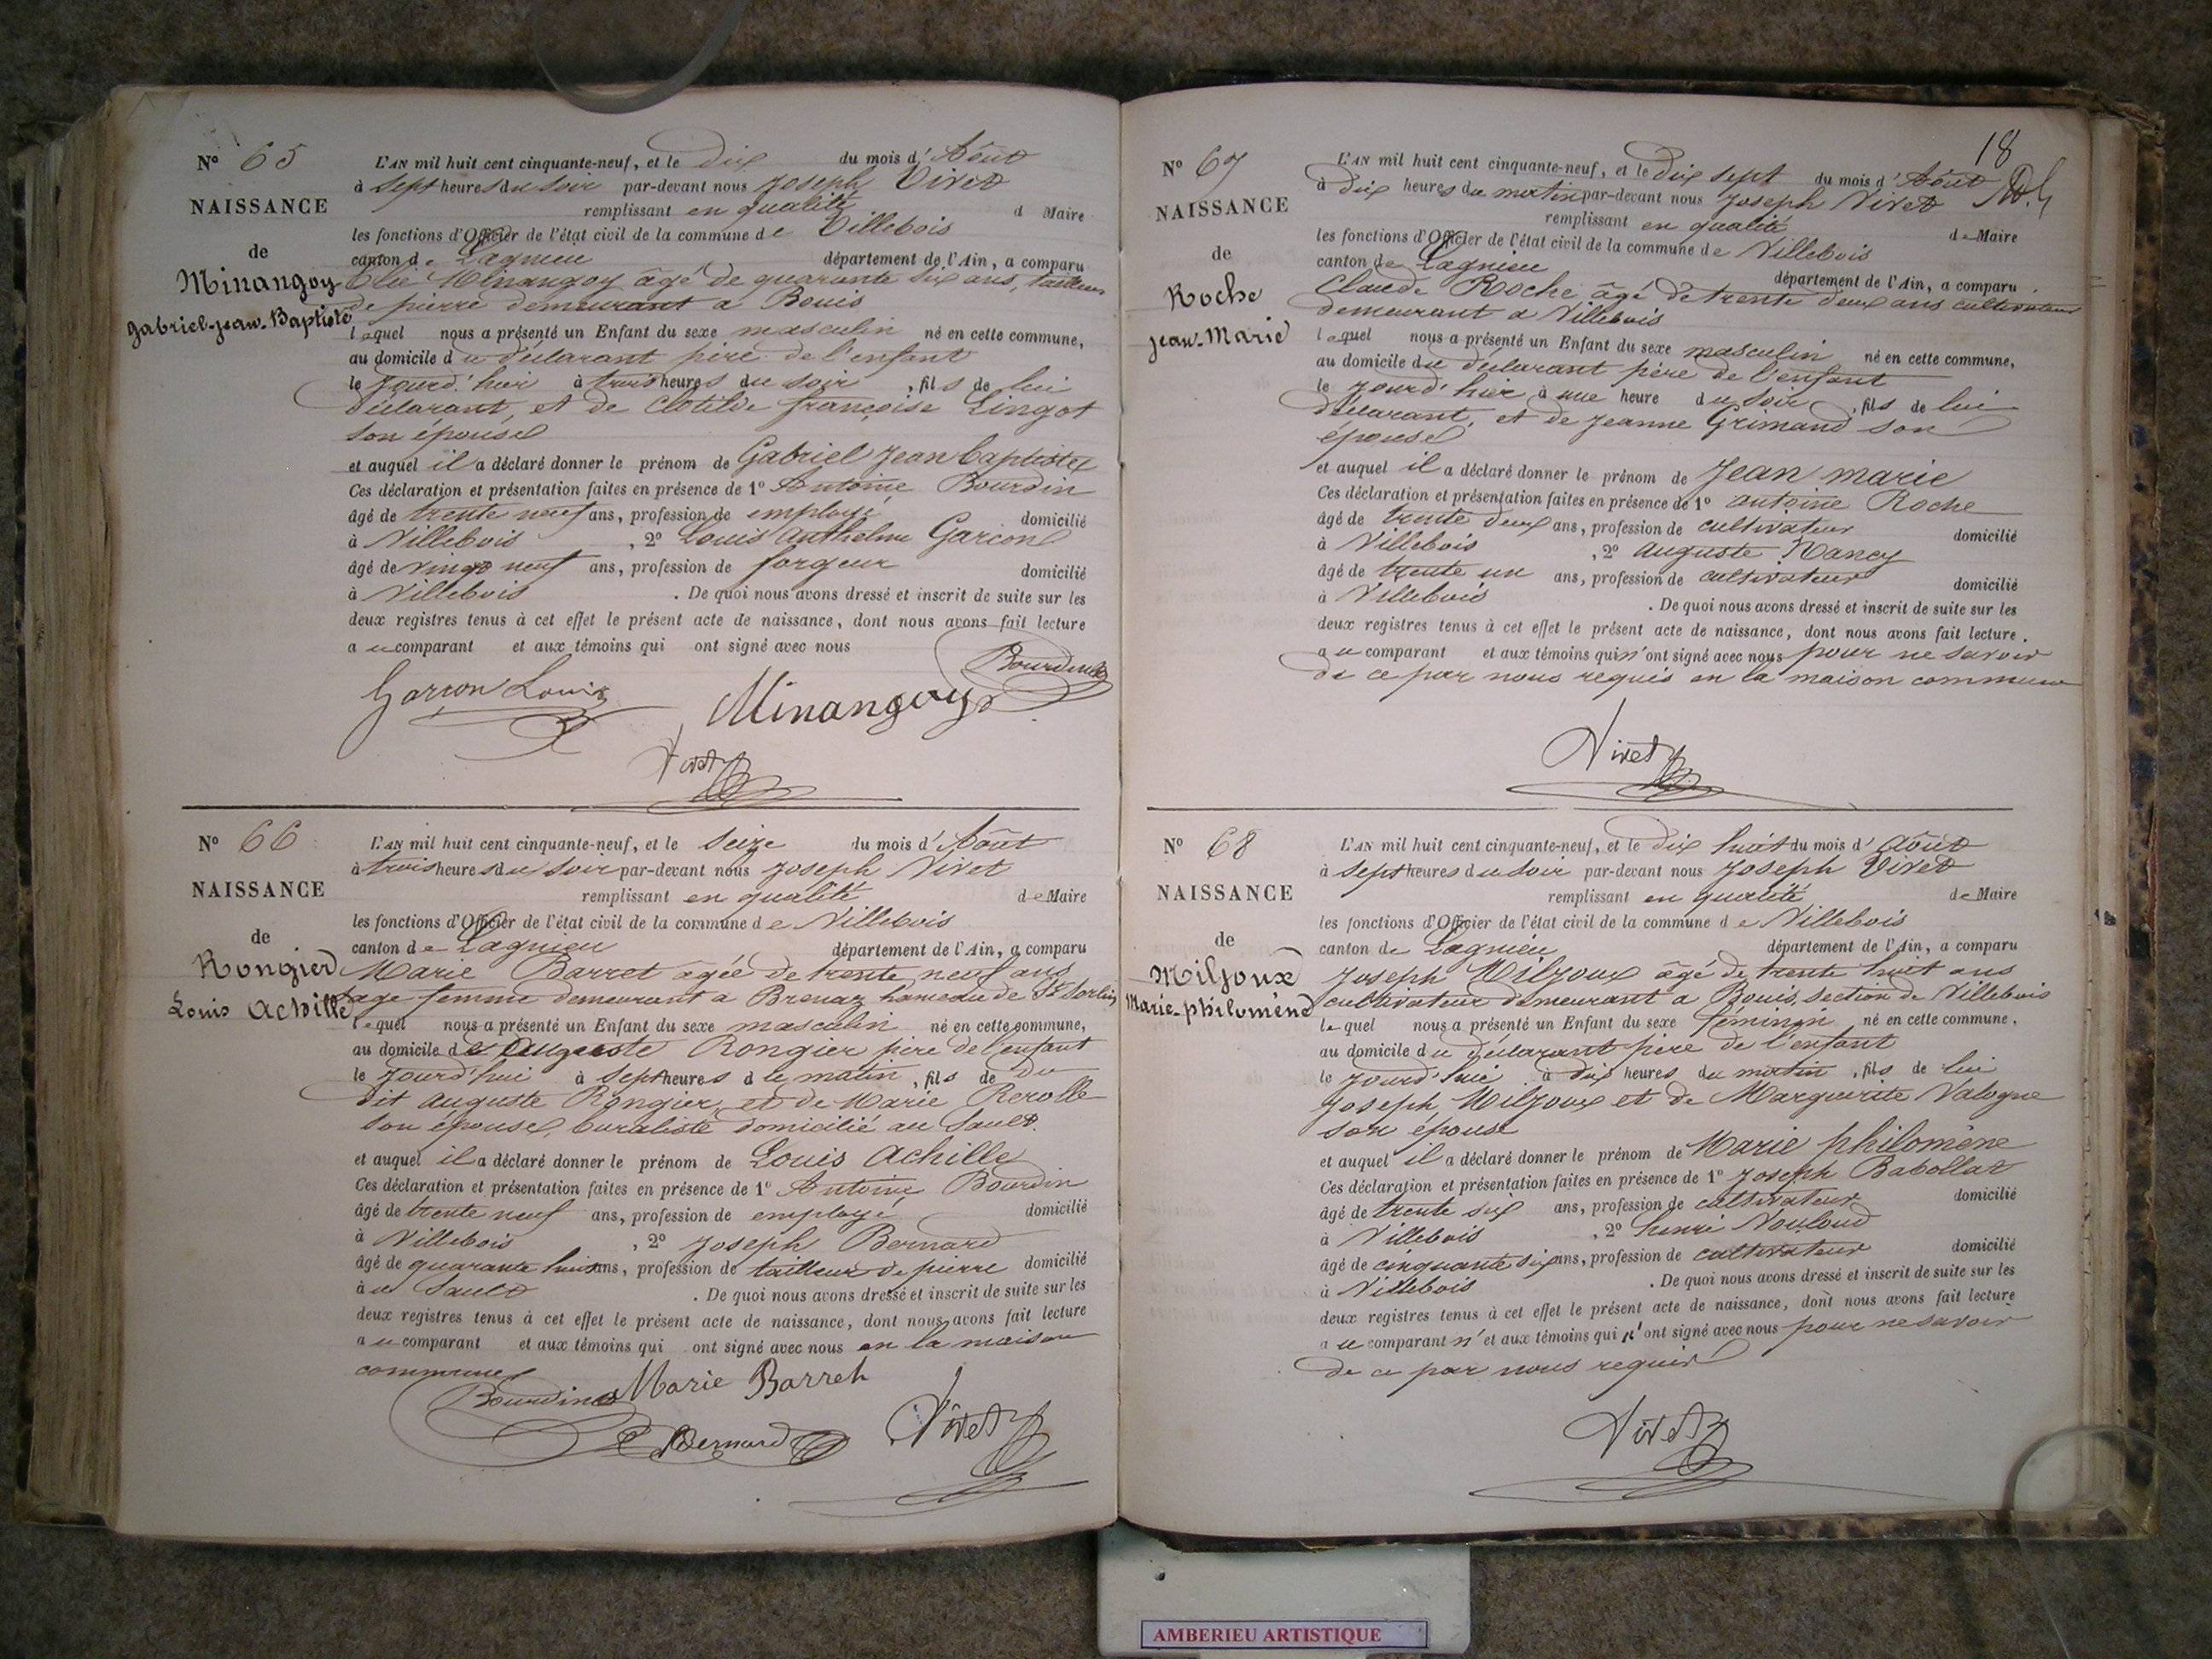 N° 65
NAISSANCE
de
Minangoy
Gabriel-jean-Baptiste
L'AN mil huit cent cinquante-neuf, et le dix du mois d'Aôut
à sept heures du soir par-devant nous Joseph Vivet
remplissant en qualité d Maire
les fonctions d'Officier de l'état civil de la commune de Villebois
canton de Lagnieu département de l'Ain, a comparu
Elie Minangoy âgé de quarante six ans, tailleur
de pierre demeurant a Bouis
lequel nous a présenté un Enfant du sexe masculin né en cette commune,
au domicile du déclarant père de l'enfant
le jourd'hier à trois heures du soir, fils de lui
déclarant, et de Clotilde françoise Lingot
son épouse
et auquel il a déclaré donner le prénom de Gabriel Jean baptiste
Ces déclaration et présentation faites en présence de 1° Antoine Bourdin
âgé de trente neuf ans, profession de employé domicilié
à Villebois, 2° Louis Anthelme Garçon
âgé de vingt neuf ans, profession de forgeur domicilié
à Villebois. De quoi nous avons dressé et inscrit de suite sur les
deux registres tenus à cet effet le présent acte de naissance, dont nous avons fait lecture
au comparant et aux témoins qui ont signé avec nous
Bourdin
Garçon Louis Minangoy
Vivet
N° 66
NAISSANCE
de
Rongier
Louis Achille
L'AN mil huit cent cinquante-neuf, et le seize du mois d'Aôut
à trois heures du soir par-devant nous Joseph Vivet
remplissant en qualité de Maire
les fonctions d'Officier de l'état civil de la commune de Villebois
canton de Lagnieu département de l'Ain, a comparu
Marie Barret âgée de trente neuf ans
sage femme demeurant a Brenaz hameau de St Sorlin
lequel nous a présenté un Enfant du sexe masculin né en cette commune,
au domicile de Auguste Rongier père de l'enfant
le jourd'hui à sept heures d le matin, fils de du
dit Auguste Rongier, et de Marie Rerolle
son épouse, buraliste domicilié au Sault.
et auquel il a déclaré donner le prénom de Louis Achille
Ces déclaration et présentation faites en présence de 1° Antoine Bourdin
âgé de trente neuf ans, profession de employé domicilié
à Villebois, 2° Joseph Bernard
âgé de quarante huit ans, profession de tailleur de pierre domicilié
au Sault. De quoi nous avons dressé et inscrit de suite sur les
deux registres tenus à cet effet le présent acte de naissance, dont nous avons fait lecture
au comparant et aux témoins qui ont signé avec nous en la maison
commune
Bourdin Marie Barret
Bernard Vivet
18
N° 67
NAISSANCE
de
Roche
jean-Marie
L'AN mil huit cent cinquante-neuf, et le dix sept du mois d'Aôut
à dix heures du matin par-devant nous Joseph Vivet
remplissant en qualité de Maire
les fonctions d'Officier de l'état civil de la commune de Villebois
canton de Lagnieu département de l'Ain, a comparu
Claude Roche âgé de trente deux ans cultivateur
demeurant a Villebois
lequel nous a présenté un Enfant du sexe masculin né en cette commune,
au domicile du déclarant père de l'enfant
le jourd'hier à une heure du soir, fils de lui
déclarant, et de Jeanne Grimand son
épouse
et auquel il a déclaré donner le prénom de Jean marie
Ces déclaration et présentation faites en présence de 1° antoine Roche
âgé de trente deux ans, profession de cultivateur domicilié
à Villebois, 2° auguste Nancy
âgé de trente un ans, profession de cultivateur domicilié
à Villebois. De quoi nous avons dressé et inscrit de suite sur les
deux registres tenus à cet effet le présent acte de naissance, dont nous avons fait lecture.
au comparant et aux témoins qui n'ont signé avec nous pour ne savoir
de ce par nous requis en la maison commune
Vivet
N° 68
NAISSANCE
de
Miljoux
Marie-philomène
L'AN mil huit cent cinquante-neuf, et le dix huit du mois d'Aôut
à sept heures du soir par-devant nous Joseph Vivet
remplissant en qualité de Maire
les fonctions d'Officier de l'état civil de la commune de Villebois
canton de Lagnieu département de l'Ain, a comparu
Joseph Miljoux âgé de trente huit ans
cultivateur demeurant a Bouis, section de Villebois
lequel nous a présenté un Enfant du sexe féminin né en cette commune,
au domicile du déclarant père de l'enfant
le jourd'hui à dix heures du matin, fils de lui
Joseph Miljoux et de Marguerite Valogne
son épouse
et auquel il a déclaré donner le prénom de Marie philomène
Ces déclaration et présentation faites en présence de 1° Joseph Babollat
âgé de trente six ans, profession de cultivateur domicilié
à Villebois, 2° henri
âgé de cinquante six ans, profession de cultivateur domicilié
à Villebois. De quoi nous avons dressé et inscrit de suite sur les
deux registres tenus à cet effet le présent acte de naissance, dont nous avons fait lecture
au comparant n' et aux témoins qui n'ont signé avec nous pour ne savoir
de ce par nous requis
Vivet
AMBERIEU ARTISTIQUE